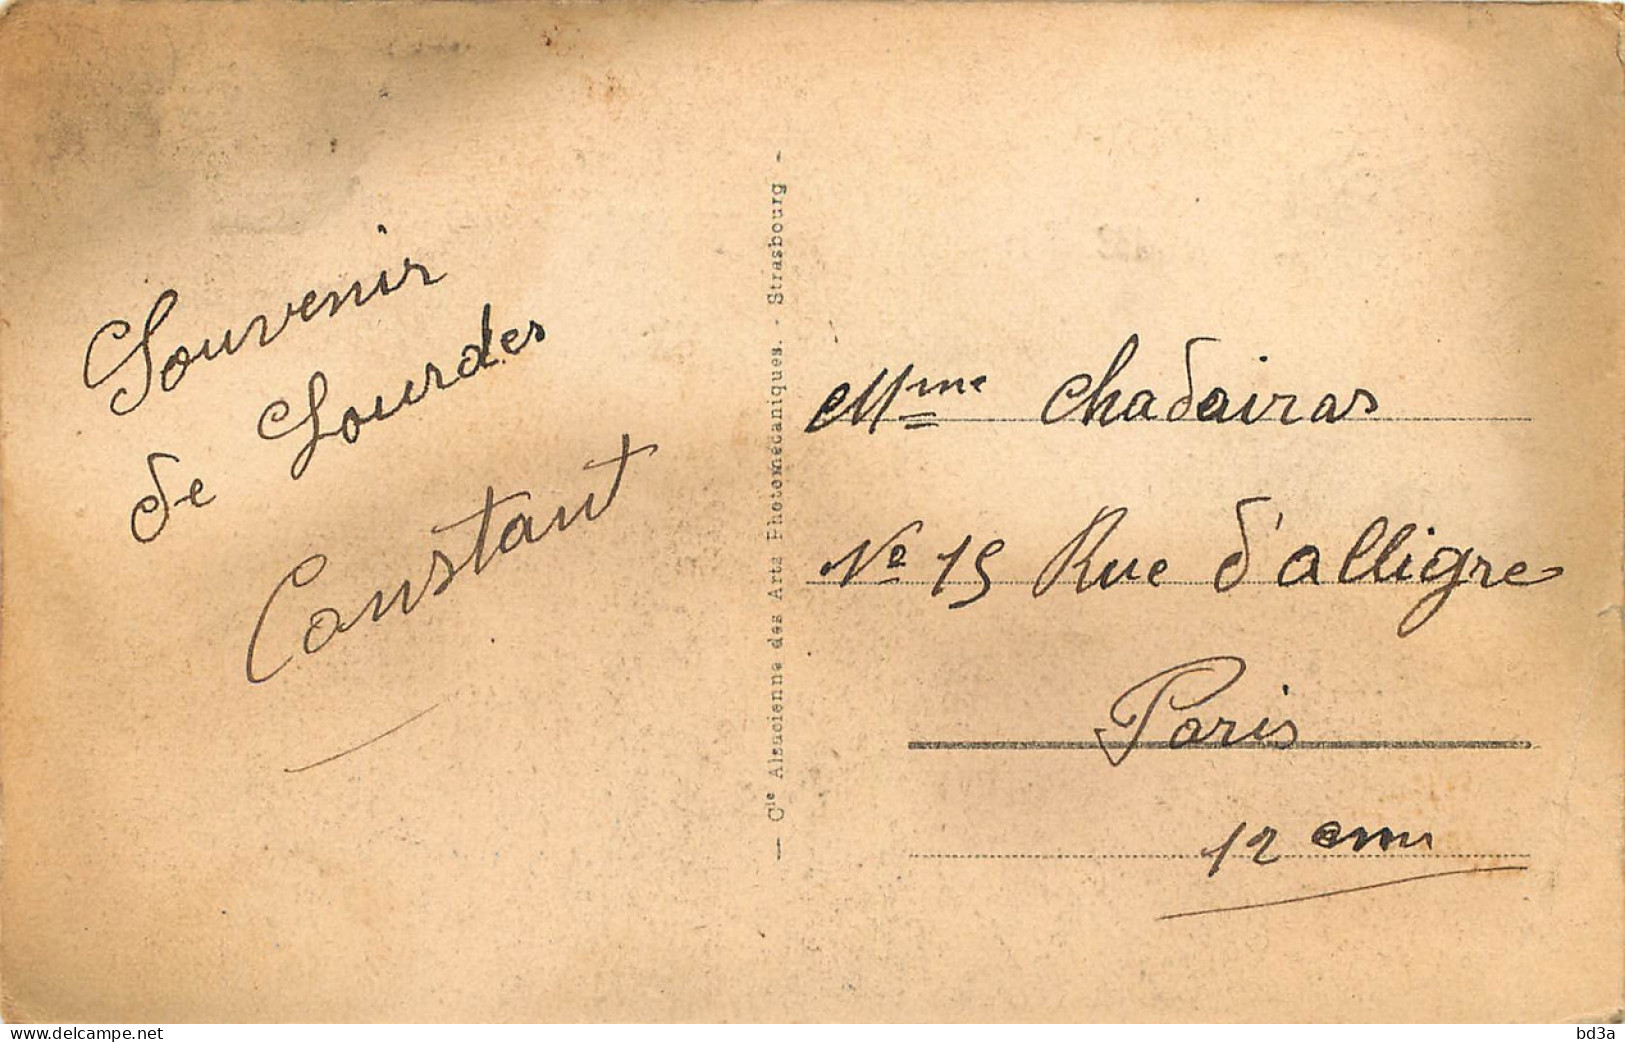 Souvenir
de Lourdes
Constant
— Cie Alsacienne des Arts Photomécaniques. - Strasbourg -
Mme Chadairas
No 15 Rue d'alligre
Paris
12 eme
www.delcampe.net
bd3a